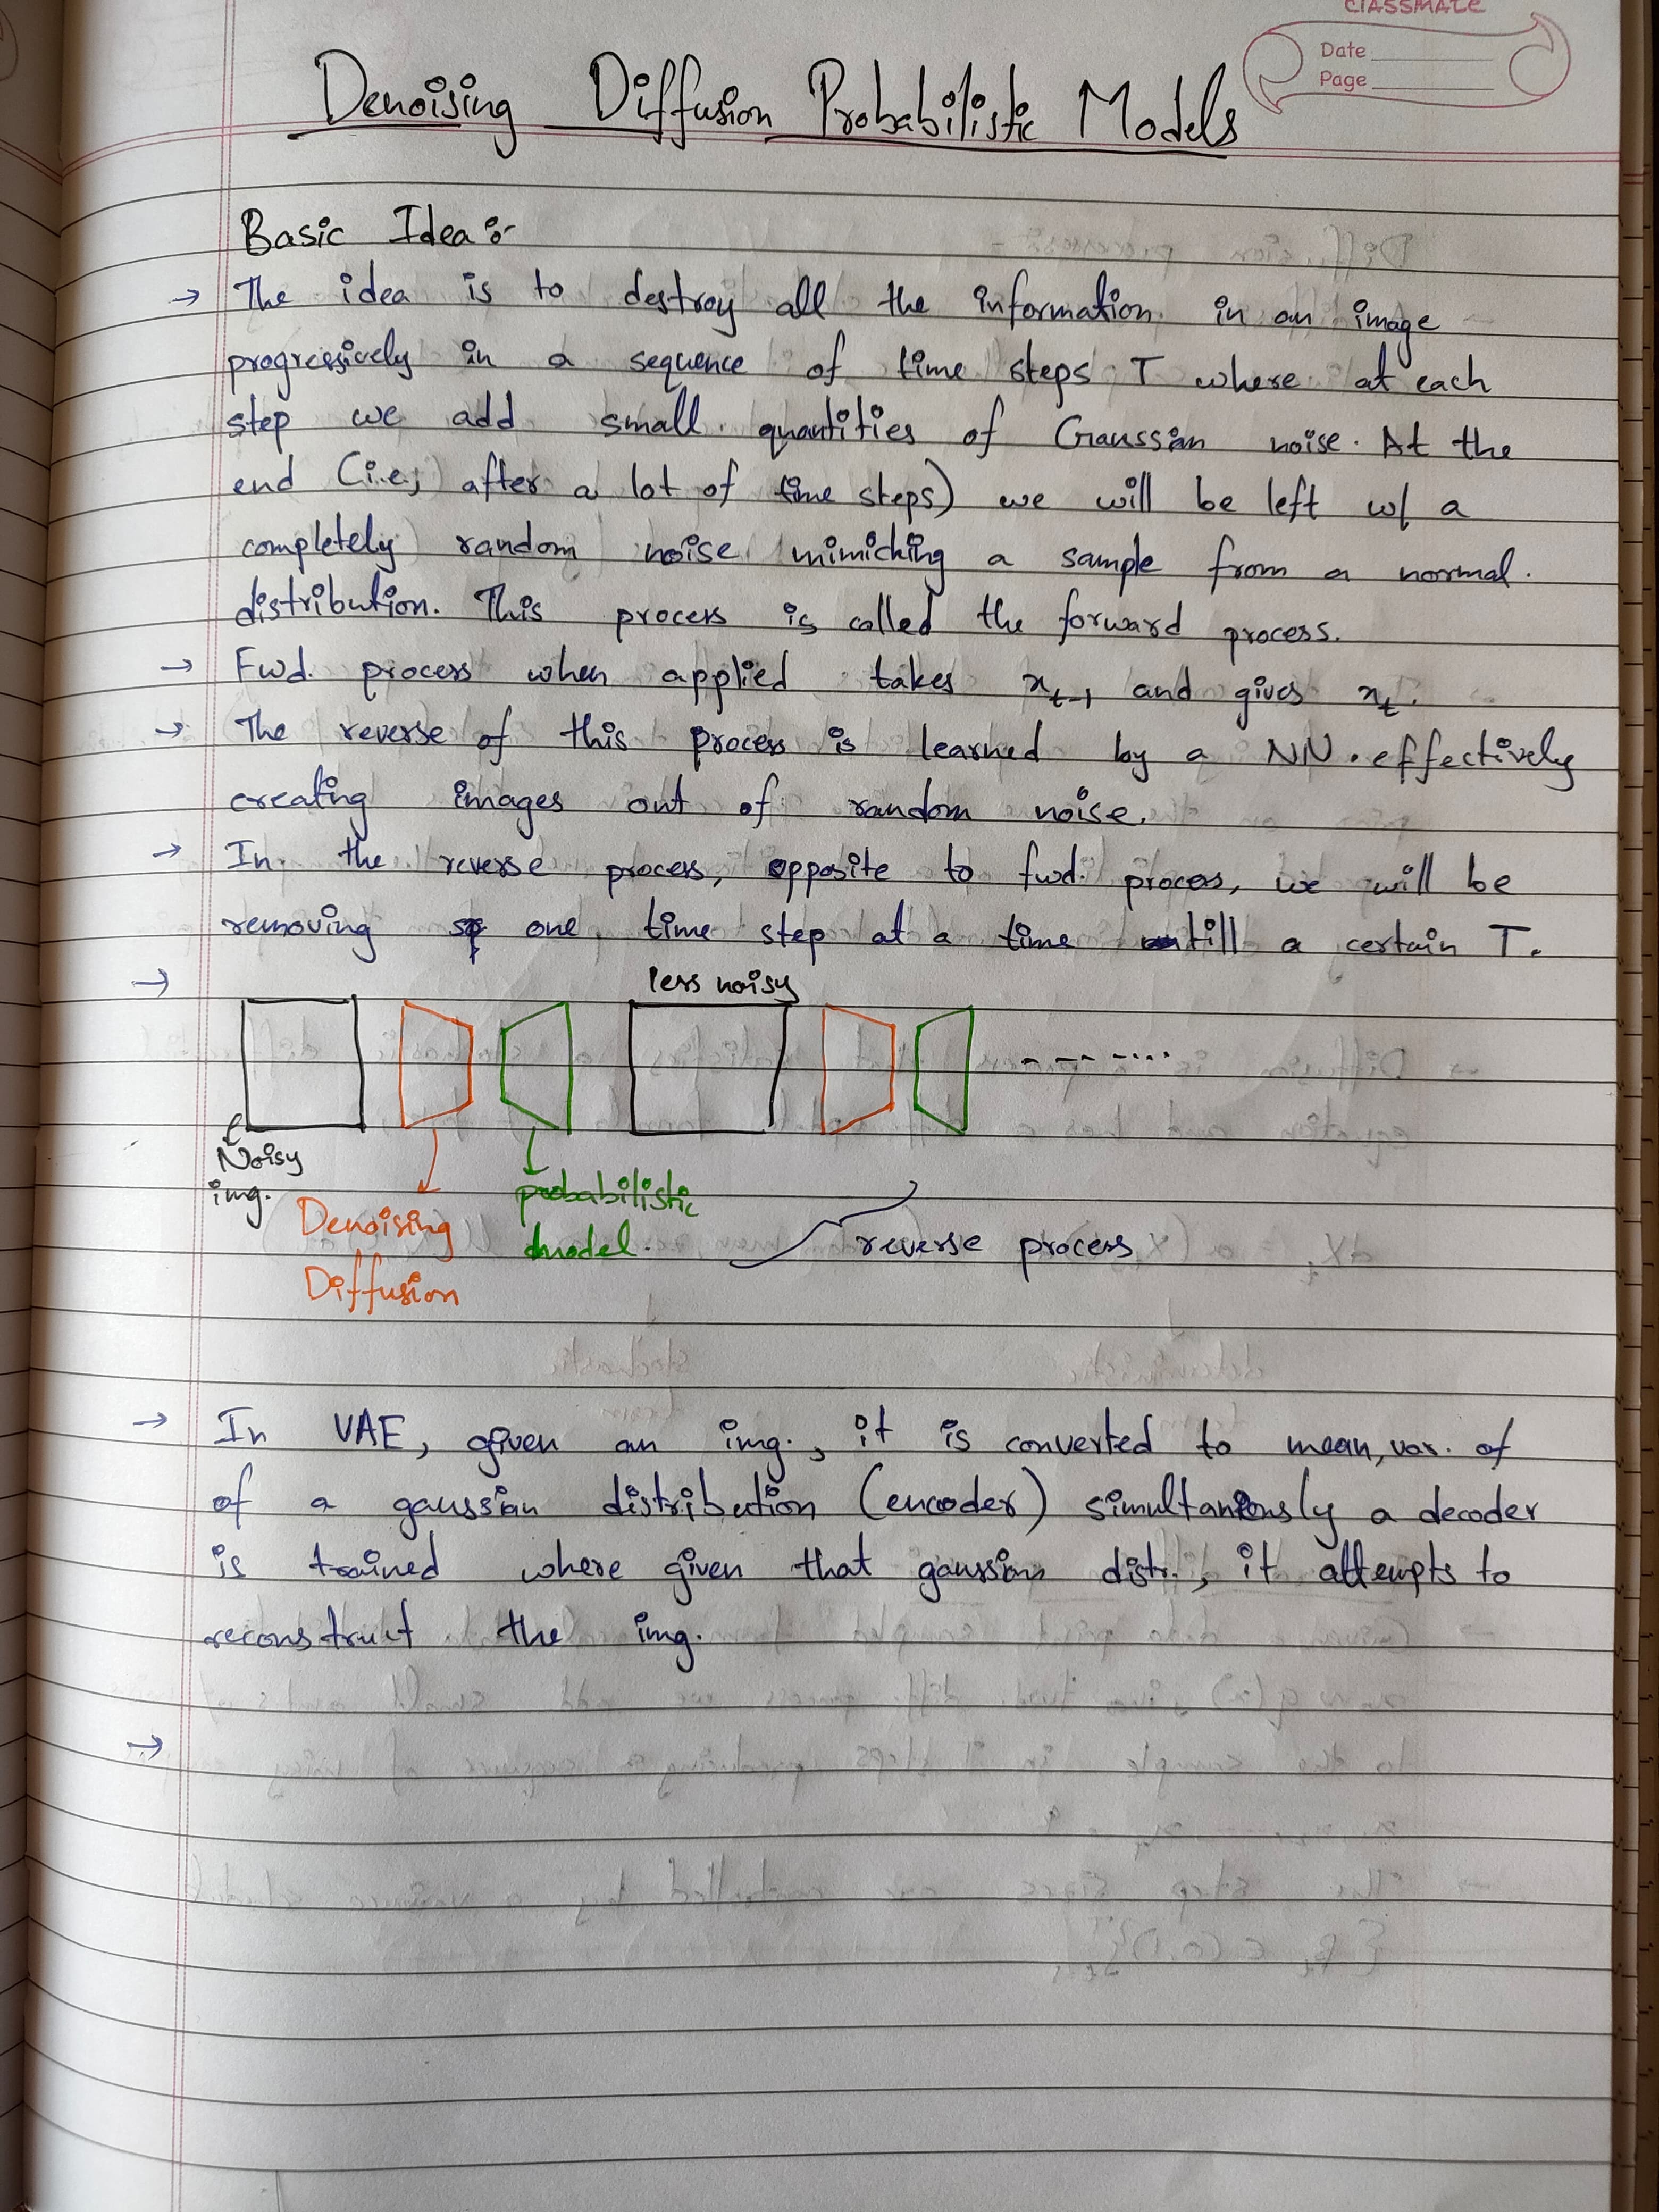 classmate
Date
Page
Denoising Diffusion Probabilistic Models
Basic Idea :-
→ The idea is to destroy all the information in an image
progressively in a sequence of time steps T where at each
step we add small quantities of Gaussian noise. At the
end (i.e; after a lot of time steps) we will be left w/ a
completely random noise mimicking a sample from a normal
distribution. This process is called the forward process.
→ Fwd. process when applied takes x_{t-1} and gives x_t.
→ The reverse of this process is learned by a NN. effectively
creating images out of random noise.
→ In the reverse process, opposite to fwd. process, we will be
removing one time step at a time till a certain T.
→
less noisy
Noisy
img.
Denoising
Diffusion
probabilistic
model.
reverse process
→ In VAE, given an img., it is converted to mean, var. of
of a gaussian distribution (encoder) simultaneously a decoder
is trained where given that gaussian distr., it attempts to
reconstruct the img.
→